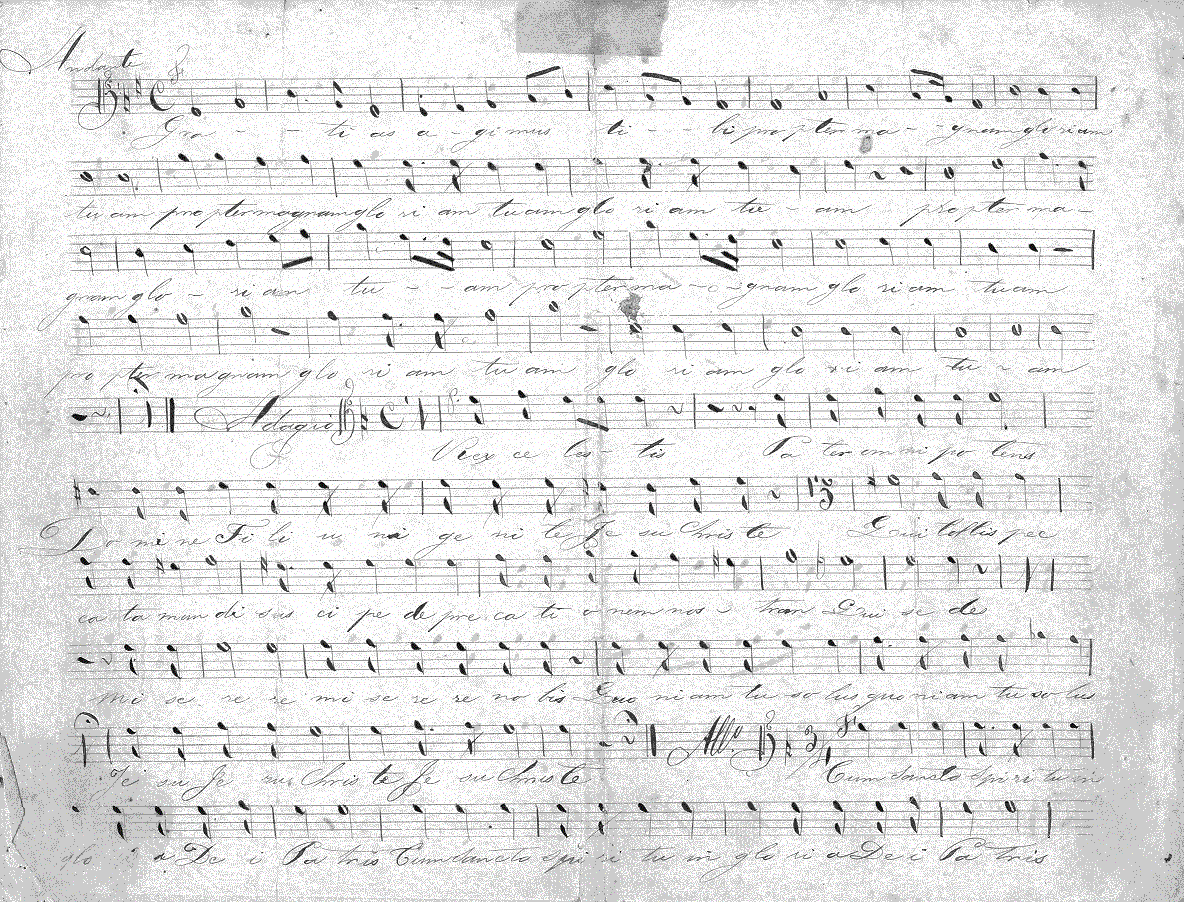 Andante
Gra - - ti as a - gimus ti - - bi propter ma - - gnam gloriam
tuam propter magnam glo ri am tuam glo ri am tu - am propter ma -
gnam glo - ri am tu - - am propter ma - o - gnam glo ri am tuam
pro pter magnam glo ri am tu am glo ri am glo ri am tu - am
Adagio
Rex ce les - tis Pa ter om ni po tens
Do mi ne Fi li u ni ge ni te Je su Chris te Qui tollis pec
ca ta mun di sus ci pe de pre ca ti o nem nos - tram Qui se des
mi se re re mi se re re no bis Quo niam tu so lus quoniam tu so lus
Je su Je su Chris te Je su Chris te Allo 3/4 F Cum Sancto Spi ri tu in
glo a De i Pa tris Cum Sancto Spi ri tu in glo ri a De i Pa tris